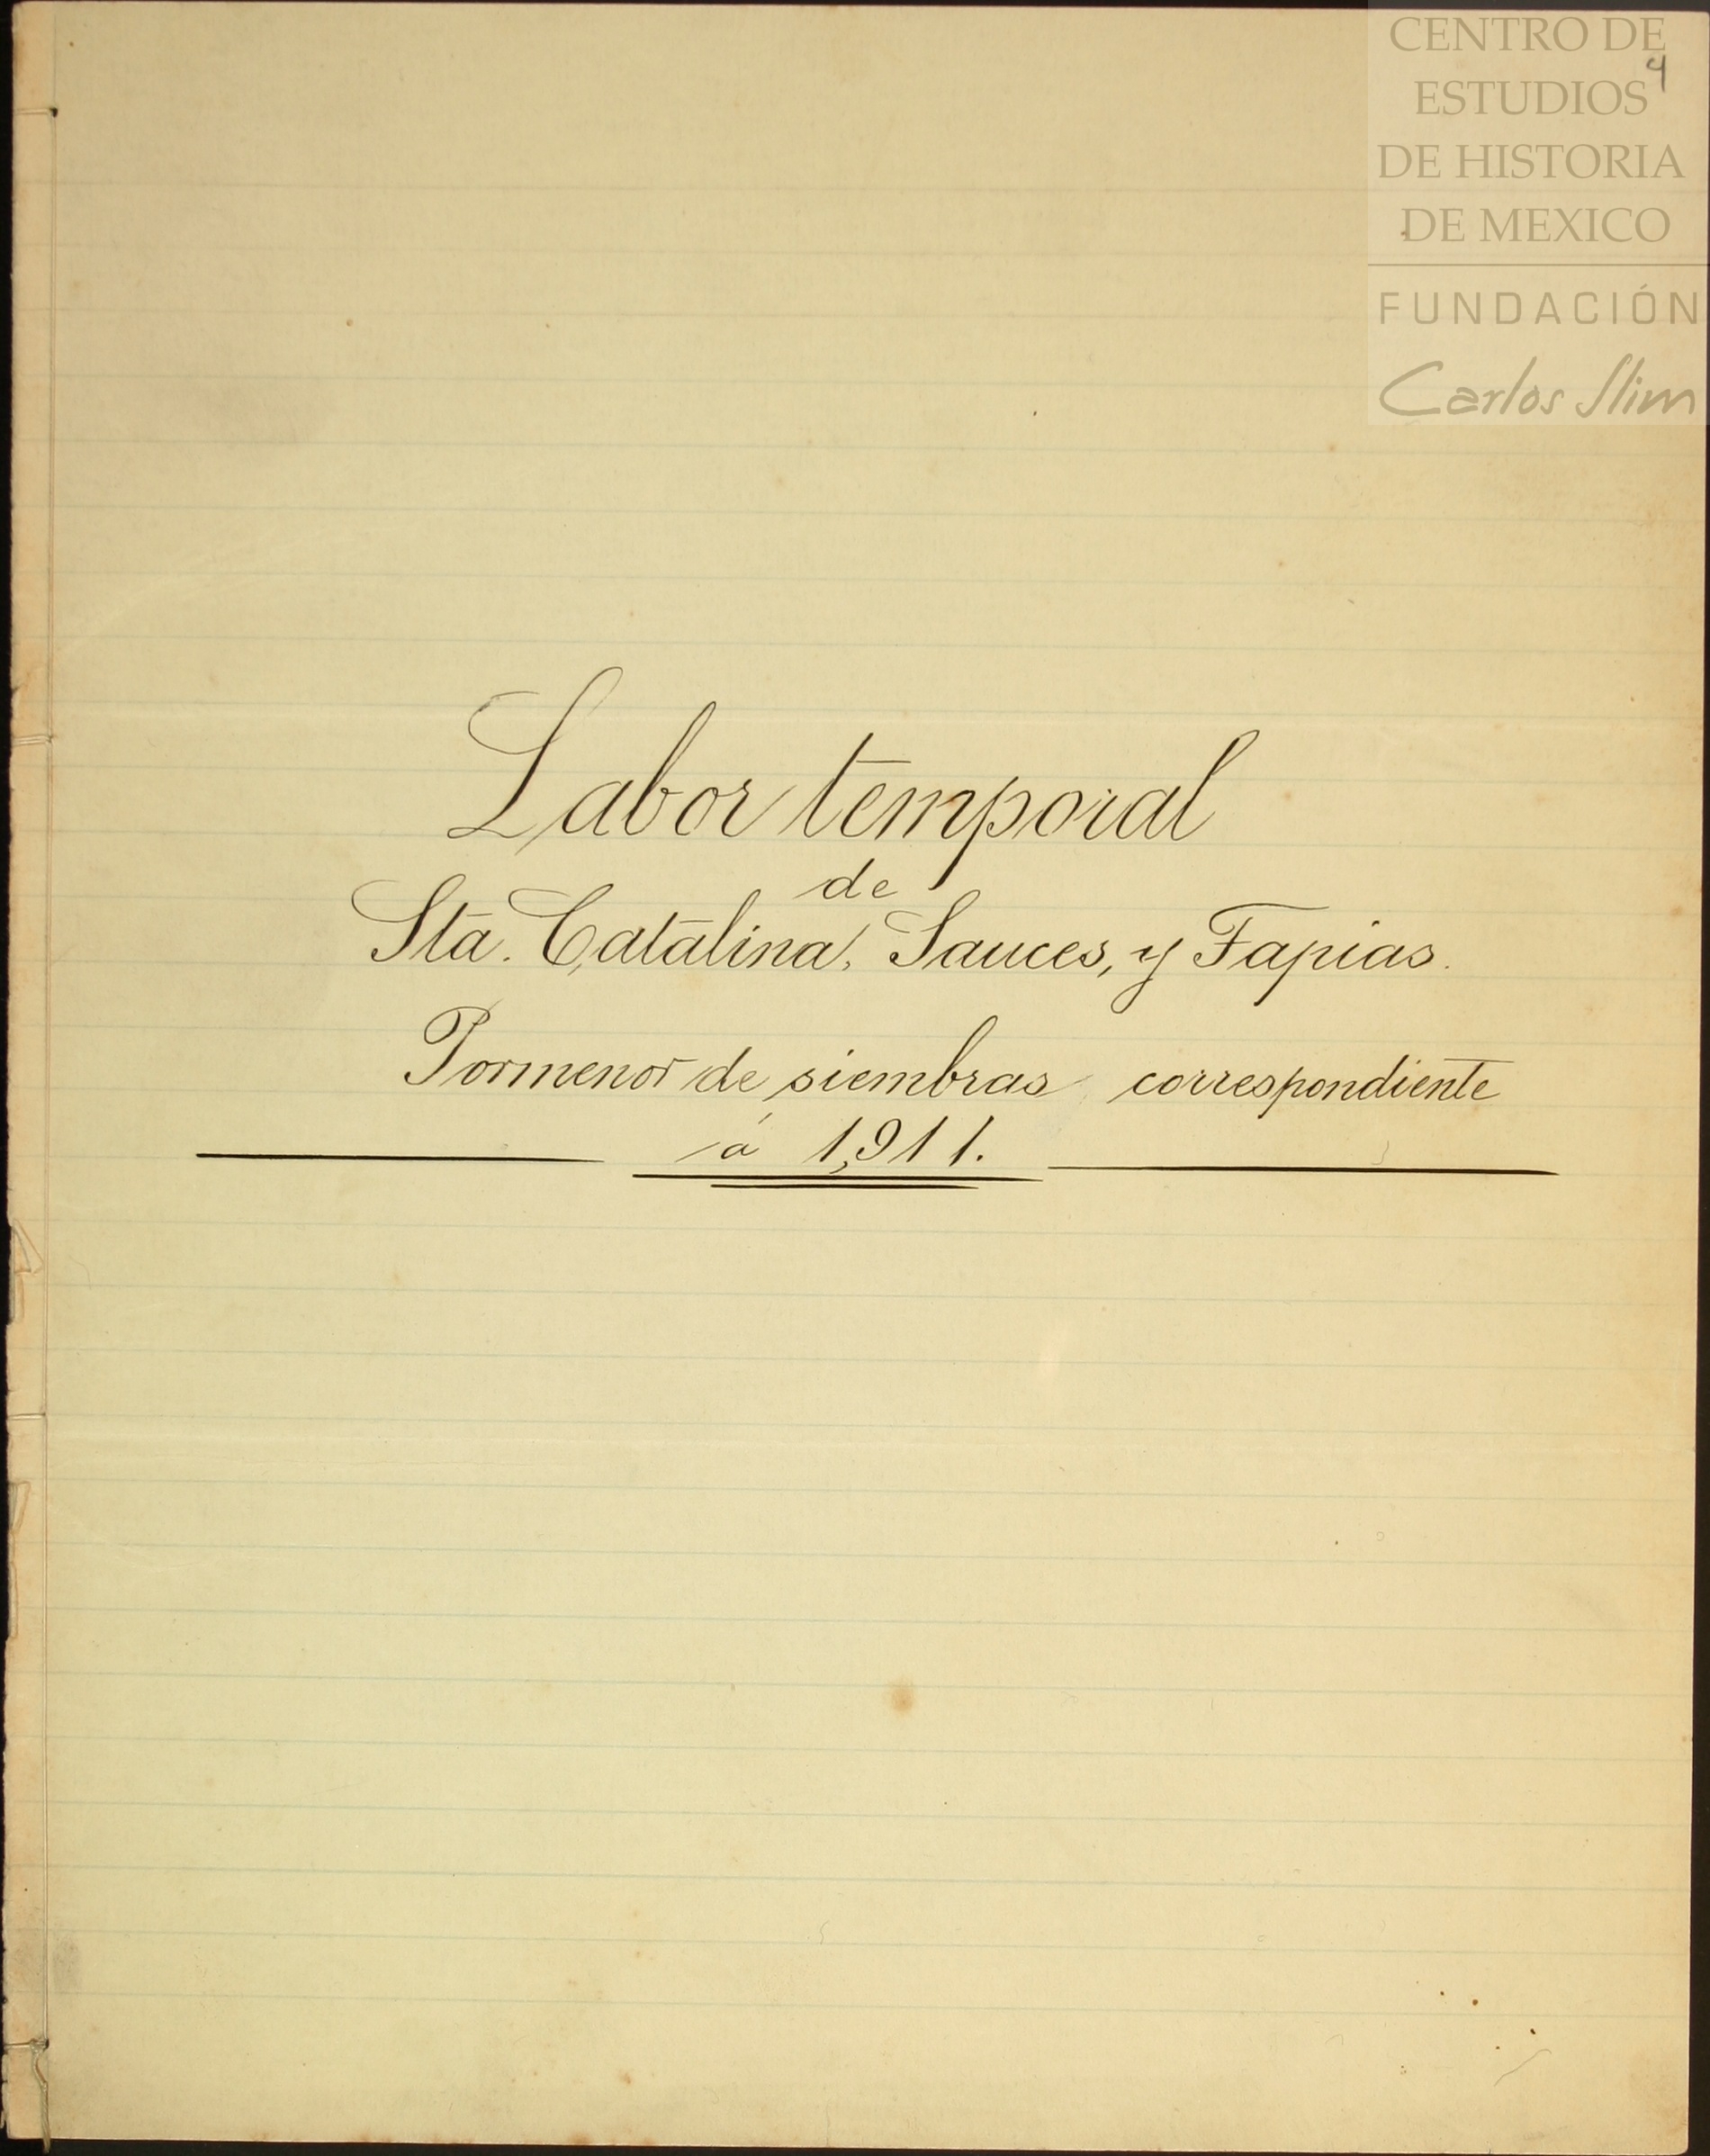 CENTRO DE
ESTUDIOS
DE HISTORIA
DE MEXICO
FUNDACIÓN
Carlos Slim
4
Labor temporal
de
Sta. Catalina, Sauces, y Tapias.
Pormenor de siembras correspondiente
á 1,911.